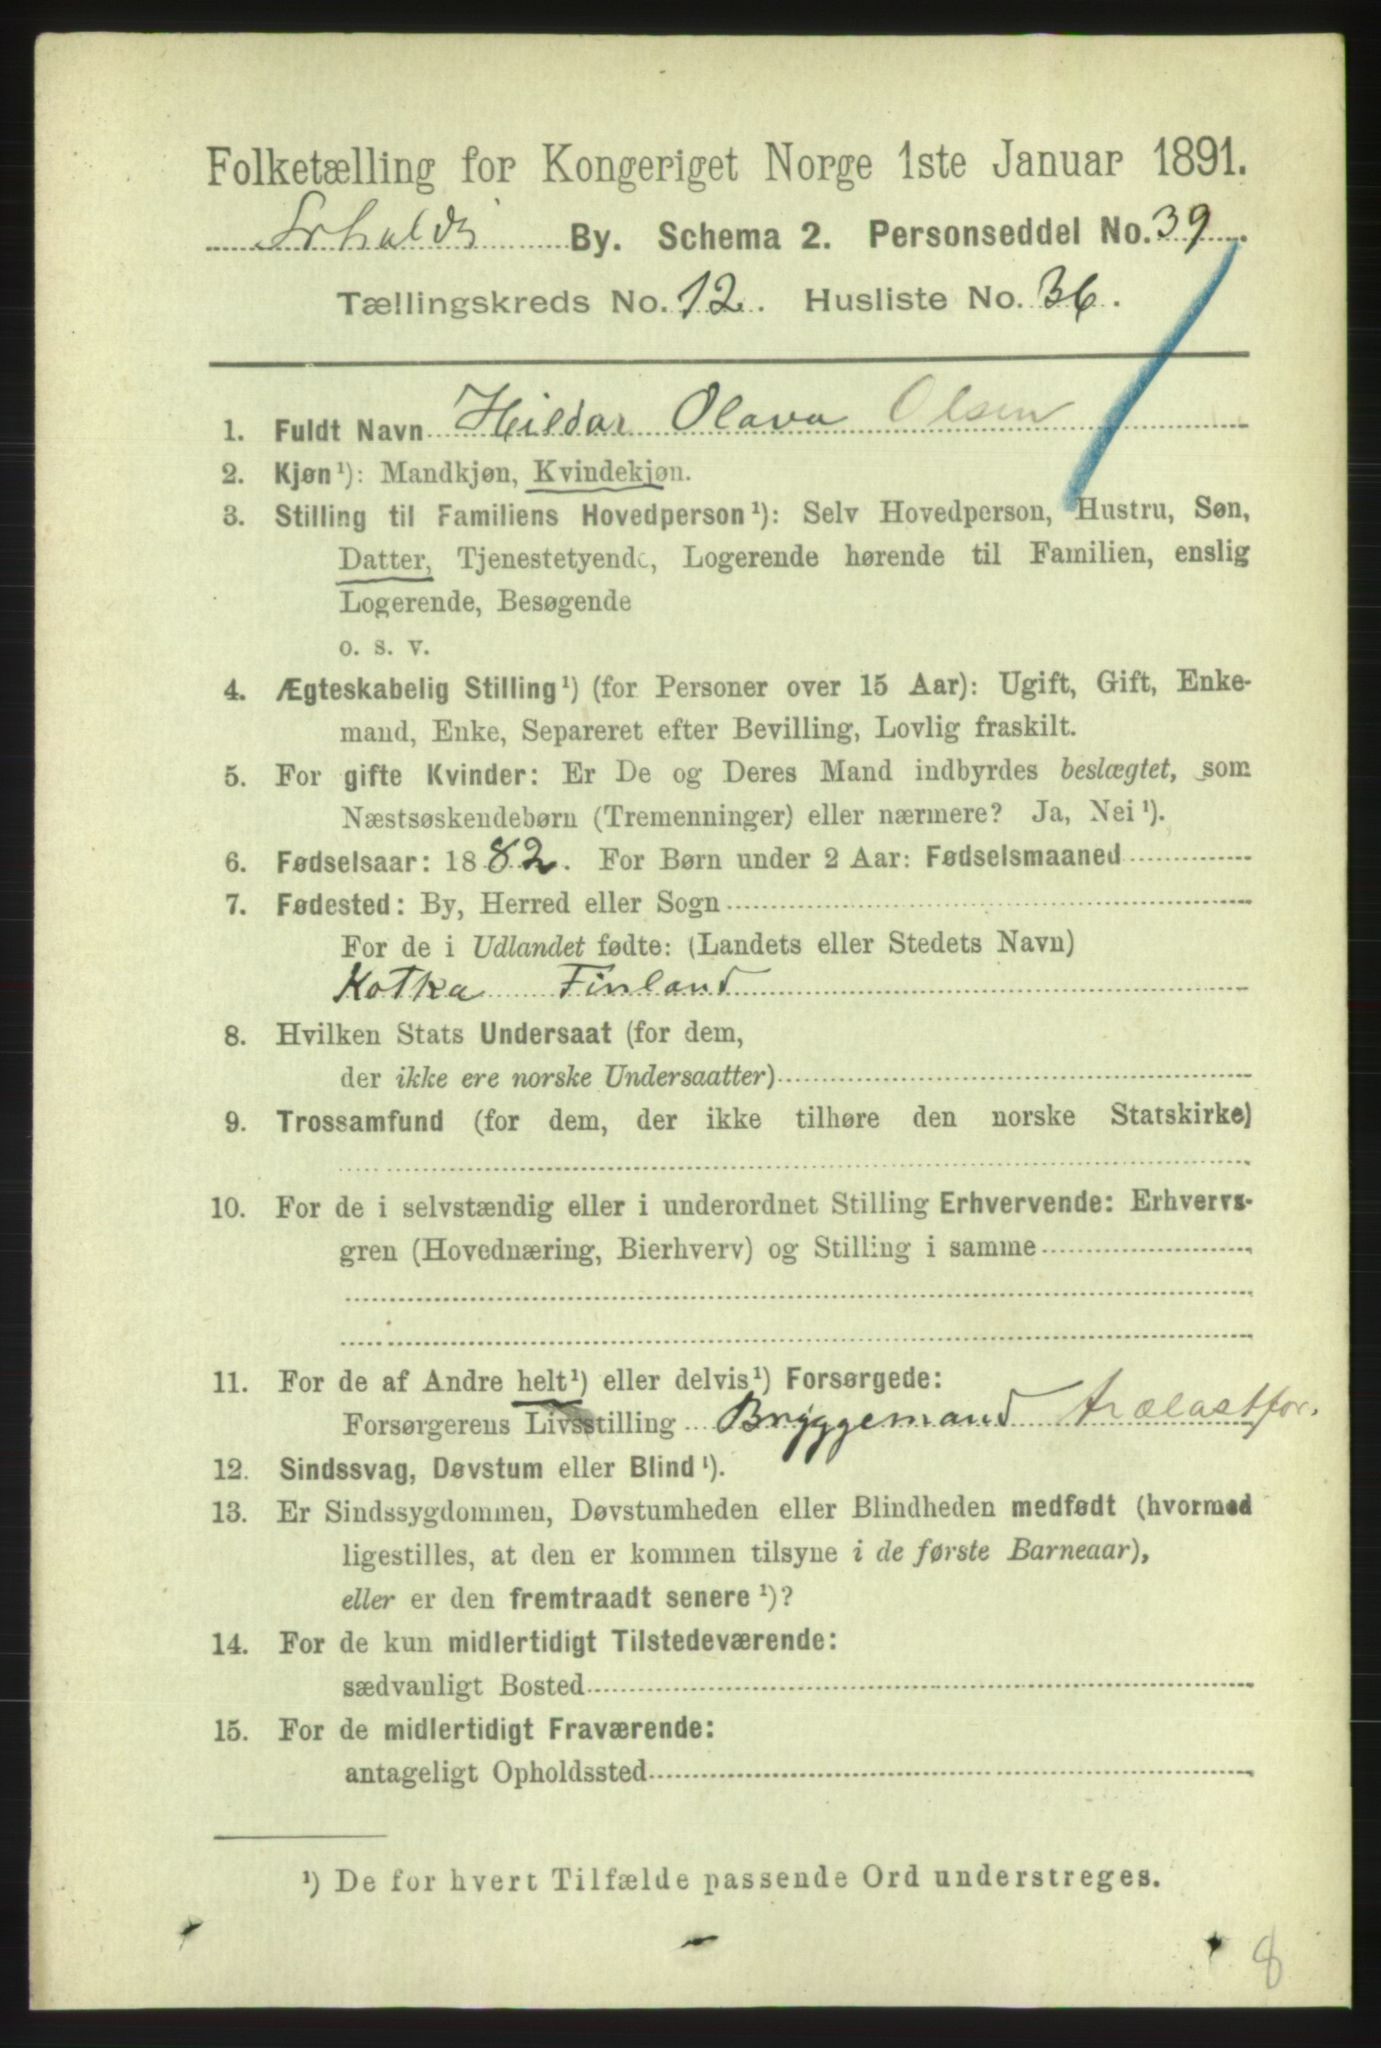 Folketælling for Kongeriget Norge 1ste Januar 1891.
Frhalds By. Schema 2. Personseddel No. 39.
Tællingskreds No. 12. Husliste No. 36.
1. Fuldt Navn Hildar Olava Olsen
2. Kjøn¹): Mandkjøn, Kvindekjøn.
3. Stilling til Familiens Hovedperson¹): Selv Hovedperson, Hustru, Søn,
Datter, Tjenestetyende, Logerende hørende til Familien, enslig
Logerende, Besøgende
o. s. v.
4. Ægteskabelig Stilling¹) (for Personer over 15 Aar): Ugift, Gift, Enke-
mand, Enke, Separeret efter Bevilling, Lovlig fraskilt.
5. For gifte Kvinder: Er De og Deres Mand indbyrdes beslægtet, som
Næstsøskendebørn (Tremenninger) eller nærmere? Ja, Nei¹).
6. Fødselsaar: 1882. For Børn under 2 Aar: Fødselsmaaned
7. Fødested: By, Herred eller Sogn
For de i Udlandet fødte: (Landets eller Stedets Navn)
Kotka Finland
8. Hvilken Stats Undersaat (for dem,
der ikke ere norske Undersaatter)
9. Trossamfund (for dem, der ikke tilhøre den norske Statskirke)
10. For de i selvstændig eller i underordnet Stilling Erhvervende: Erhvervs-
gren (Hovednæring, Bierhverv) og Stilling i samme
11. For de af Andre helt¹) eller delvis¹) Forsørgede:
Forsørgerens Livsstilling Bryggemand trælastfor.
12. Sindssvag, Døvstum eller Blind¹).
13. Er Sindssygdommen, Døvstumheden eller Blindheden medfødt (hvormed
ligestilles, at den er kommen tilsyne i de første Barneaar),
eller er den fremtraadt senere¹)?
14. For de kun midlertidigt Tilstedeværende:
sædvanligt Bosted
15. For de midlertidigt Fraværende:
antageligt Opholdssted
¹) De for hvert Tilfælde passende Ord understreges.
8